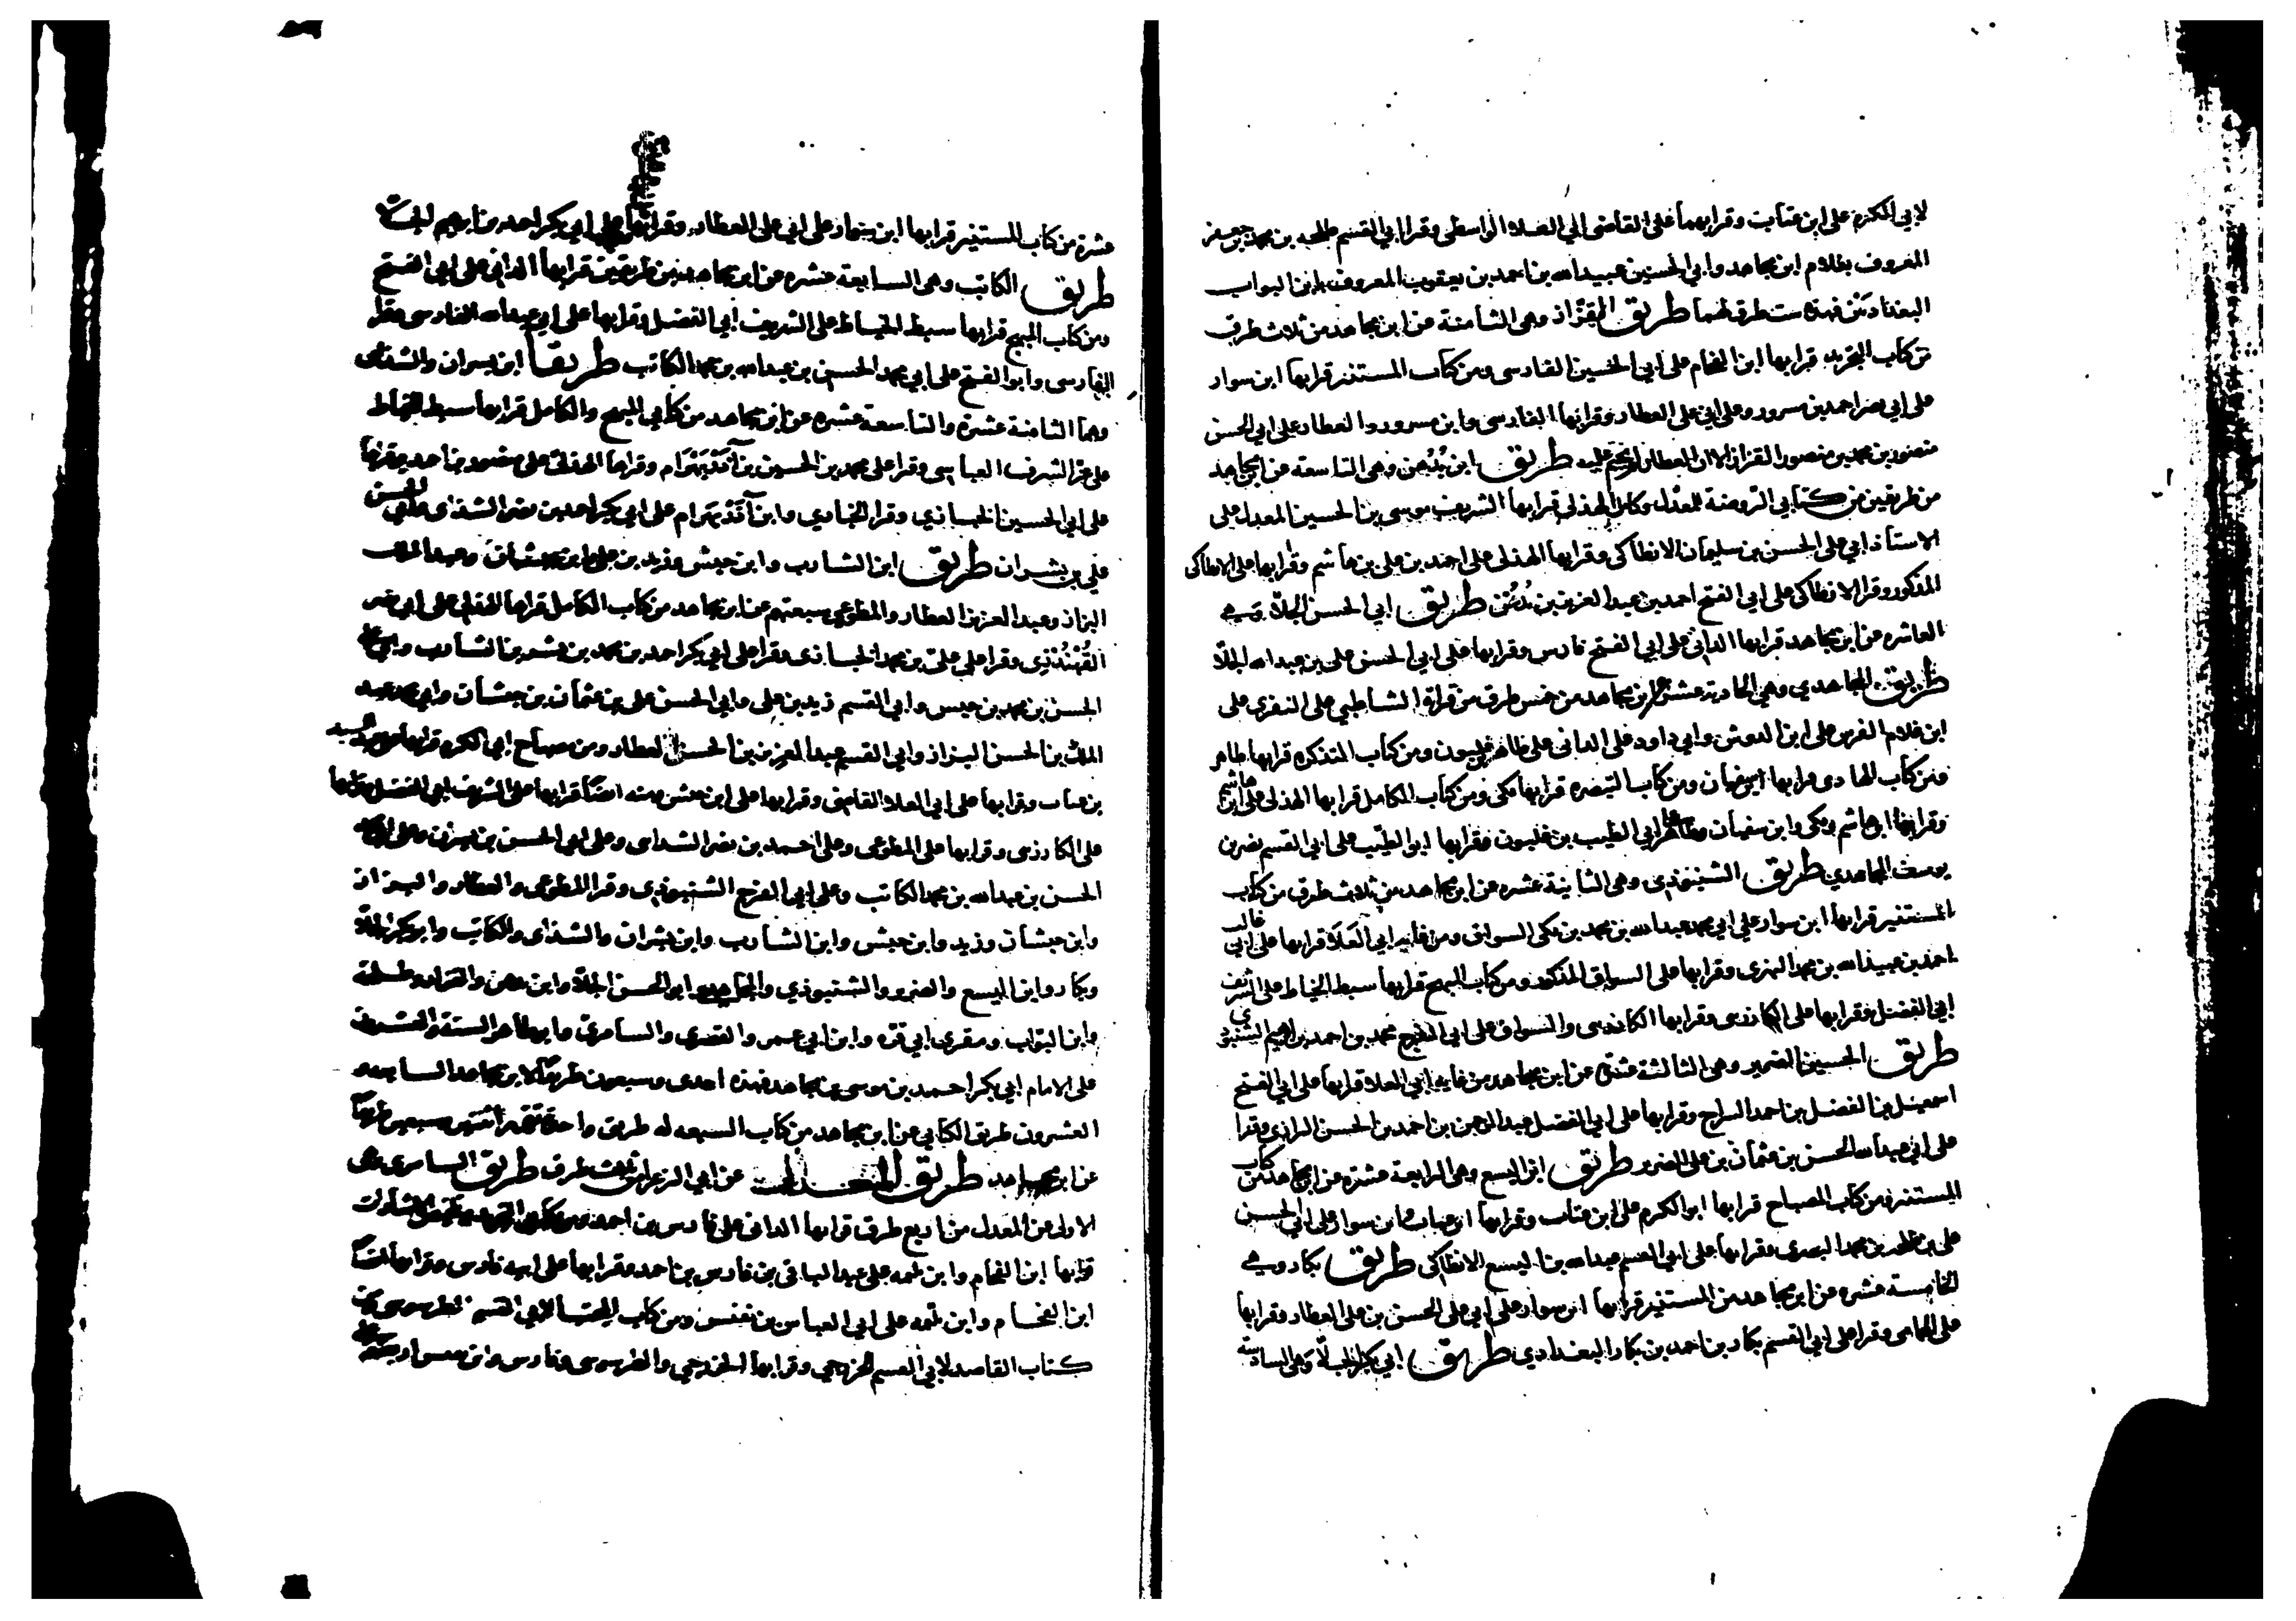 لابي الكرم على ابن عتاب وقرا بهما على القاضي ابي العلا الواسطي وقرا ابي القسم طلحه بن محمد بن جعفر
المعروف بغلام ابن مجاهد وابي الحسين عبيد الله بن احمد بن يعقوب المعروف بابن البواب
البغداديين فهذه ست طرق لهما طريق القزاز وهي الثامنة عن ابن مجاهد من ثلاث طرق
من كتاب التجريد قرا بها ابن الفحام على ابي الحسين الفارسي ومن كتاب المستنير قرا بها ابن سوار
على ابي نصر احمد بن مسرور وعلى ابي على العطار وقرا بها الفارسي وابن مسرور والعطار على ابي الحسن
منصور بن محمد بن منصور القزاز الا ان العطار لم يختم عليه طريق ابن بدهن وهي التاسعة عن ابن مجاهد
من طريقين من كتابي الروضة للمعدل وكامل الهذلي قرا بها الشريف موسى بن الحسين المعدل على
الاستاذ ابي على الحسن بن سليمان الانطاكي وقرا بها الهذلي على احمد بن على بن هاشم وقرا بها على الانطاكي
المذكور وقرا الانطاكي على ابي الفتح احمد بن عبد العزيز بن بدهن طريق ابي الحسن الجلا وهي
العاشره عن ابن مجاهد قرا بها الداني على ابي الفتح فارس وقرا بها على ابي الحسن على بن عبد الله الجلا
طريق المجاهدي وهي الحادية عشر عن ابن مجاهد من خمس طرق من قراة الشاطبي على النفزي على
ابن غلام الفرس على ابن الدوش وابي داود على الداني على طاهر بن غلبون ومن كتاب التذكره قرا بها طاهر
ومن كتاب الهادي قرا بها ابن سفيان ومن كتاب التبصره قرا بها مكي ومن كتاب الكامل قرا بها الهذلي على ابن هاشم
وقرا بها ابن هاشم ومكي وابن سفيان وطاهر على ابي الطيب بن غلبون وقرا بها ابو الطيب على ابي القسم نصر بن
يوسف المجاهدي طريق الشنبوذي وهي الثانية عشره عن ابن مجاهد من ثلاث طرق من كتاب
المستنير قرا بها ابن سوار على ابي محمد عبد الله بن محمد بن مكي السواق ومن غايه ابي العلا قرا بها على ابي غالب
احمد بن عبيد الله بن محمد النهري وقرا بها على السواق المذكور ومن كتاب المبهج قرا بها سبط الخياط على الشريف
ابي الفضل وقرا بها على الكارزي وقرا بها الكارزي والسواق على ابي الفرج محمد بن احمد بن ابراهيم الشنبوذي
طريق الحسين الضرير وهي الثالثة عشره عن ابن مجاهد من غايه ابي العلا قرا بها على ابي الفتح
اسمعيل بن الفضل بن احمد السراج وقرا بها على ابي الفضل عبد الرحمن بن احمد بن الحسن الرازي وقرا
على ابي عبد الله الحسن بن عثمان بن على الضرير طريق ابن اليسع وهي الرابعة عشرة عن ابن مجاهد من كتاب
المستنير ومن كتاب المصباح قرا بها ابو الكرم على ابن عتاب وقرا بها ابن عتاب وابن سوار على ابي الحسن
على بن طلحه بن محمد البصري وقرا بها على ابي القسم عبد الله بن اليسع الانطاكي طريق بكار وهي
الخامسة عشره عن ابن مجاهد من المستنير قرا بها ابن سوار على ابي على الحسن بن على العطار وقرا بها
على الحمامي وقرا على ابي القسم بكار بن احمد بن بكار البغدادي طريق ابي بكر الجلا وهي السادسة
عشرة من كتاب المستنير قرا بها ابن سوار على ابي على العطار وقرا بها على ابي بكر احمد بن ابراهيم الجلا
طريق الكاتب وهي السابعة عشره عن ابن مجاهد من طريقين قرا بها الداني على ابي الفتح
ومن كتاب المبهج قرا بها سبط الخياط على الشريف ابي الفضل وقرا بها على ابي عبد الله الفارسي وقرا
الفارسي وابو الفتح على ابي محمد الحسن بن عبد الله بن محمد الكاتب طريقا ابن بشران والشذاي
وهما الثامنة عشرة والتاسعة عشره عن ابن مجاهد من كتابي المبهج والكامل قرا بها سبط الخياط
على عز الشرف العباسي وقرا على محمد بن الحسين بن آذربهرام وقرا بها الهذلي على منصور بن احمد وقرا بها
على ابي الحسين الخبازي وقرا الخبازي وابن آذربهرام على ابي بكر احمد بن نصر الشذاي وعلى ابي الحسن
على بن بشران طريق ابن الشارب وابن حبش وزيد بن على وابن حبشان وعبد الملك
البزاز وعبد العزيز العطار والمطوعي سبعتهم عن ابن مجاهد من كتاب الكامل قرا بها الهذلي على ابي نصر
القهندزي وقرا على على بن محمد الخبازي وقرا على ابي بكر احمد بن محمد بن بشر بن الشارب وابي على
الحسن بن محمد بن حبش وابي القسم زيد بن على وابي الحسن على بن عثمان بن حبشان وابي محمد عبد
الملك بن الحسن البزاز وابي القسم عبد العزيز بن الحسن العطار ومن مصباح ابي الكرم قرا بها على
بن عتاب وقرا بها على ابي العلا القاضي وقرا بها على ابن حبش ومنه ايضا قرا بها على الشريف ابي الفضل وقرا بها
على الكارزي وقرا بها على المطوعي وعلى احمد بن نصر الشذاي وعلى ابي الحسن بن بشران وعلى ابي محمد
الحسن بن عبد الله بن محمد الكاتب وعلى ابي الفرج الشنبوذي وقرا المطوعي والعطار والبزاز
وابن حبشان وزيد وابن حبش وابن الشارب وابن بشران والشذاي والكاتب وابو بكر الجلا
وبكار وابن اليسع والضرير والشنبوذي والمجاهدي وابو الحسن الجلا وابن بدهن والقزاز وطلحة
وابن البواب ومقري ابي قره وابن ابي عمر والقصري والسامري وابو طاهر الستة والعشرون
على الامام ابي بكر احمد بن موسى بن مجاهد فهذه احدى وسبعون طريقا لابن مجاهد السابعه و
العشرون طريق الكتاني عن ابن مجاهد من كتاب السبعه له طريق واحدة تتمه اثنتين وسبعين طريقا
عن ابن مجاهد طريق المعدل عن ابي الزعرا من ثلث طرق طريق السامري وهي
الاولى عن المعدل من اربع طرق قرا بها الداني على فارس بن احمد ومن كتابي التجريد وتلخيص العبارات
قرا بها ابن الفحام وابن بليمه على عبد الباقي بن فارس بن احمد وقرا بها على ابيه فارس وقرا بها ايضا
ابن الفحام وابن بليمه على ابي العباس بن نفيس ومن كتاب المجتبا لابي القسم الطرسوسي ومن
كتاب القاصد لابي القسم الخزرجي وقرا بها الخزرجي والطرسوسي وفارس وابن نفيس اربعتهم على